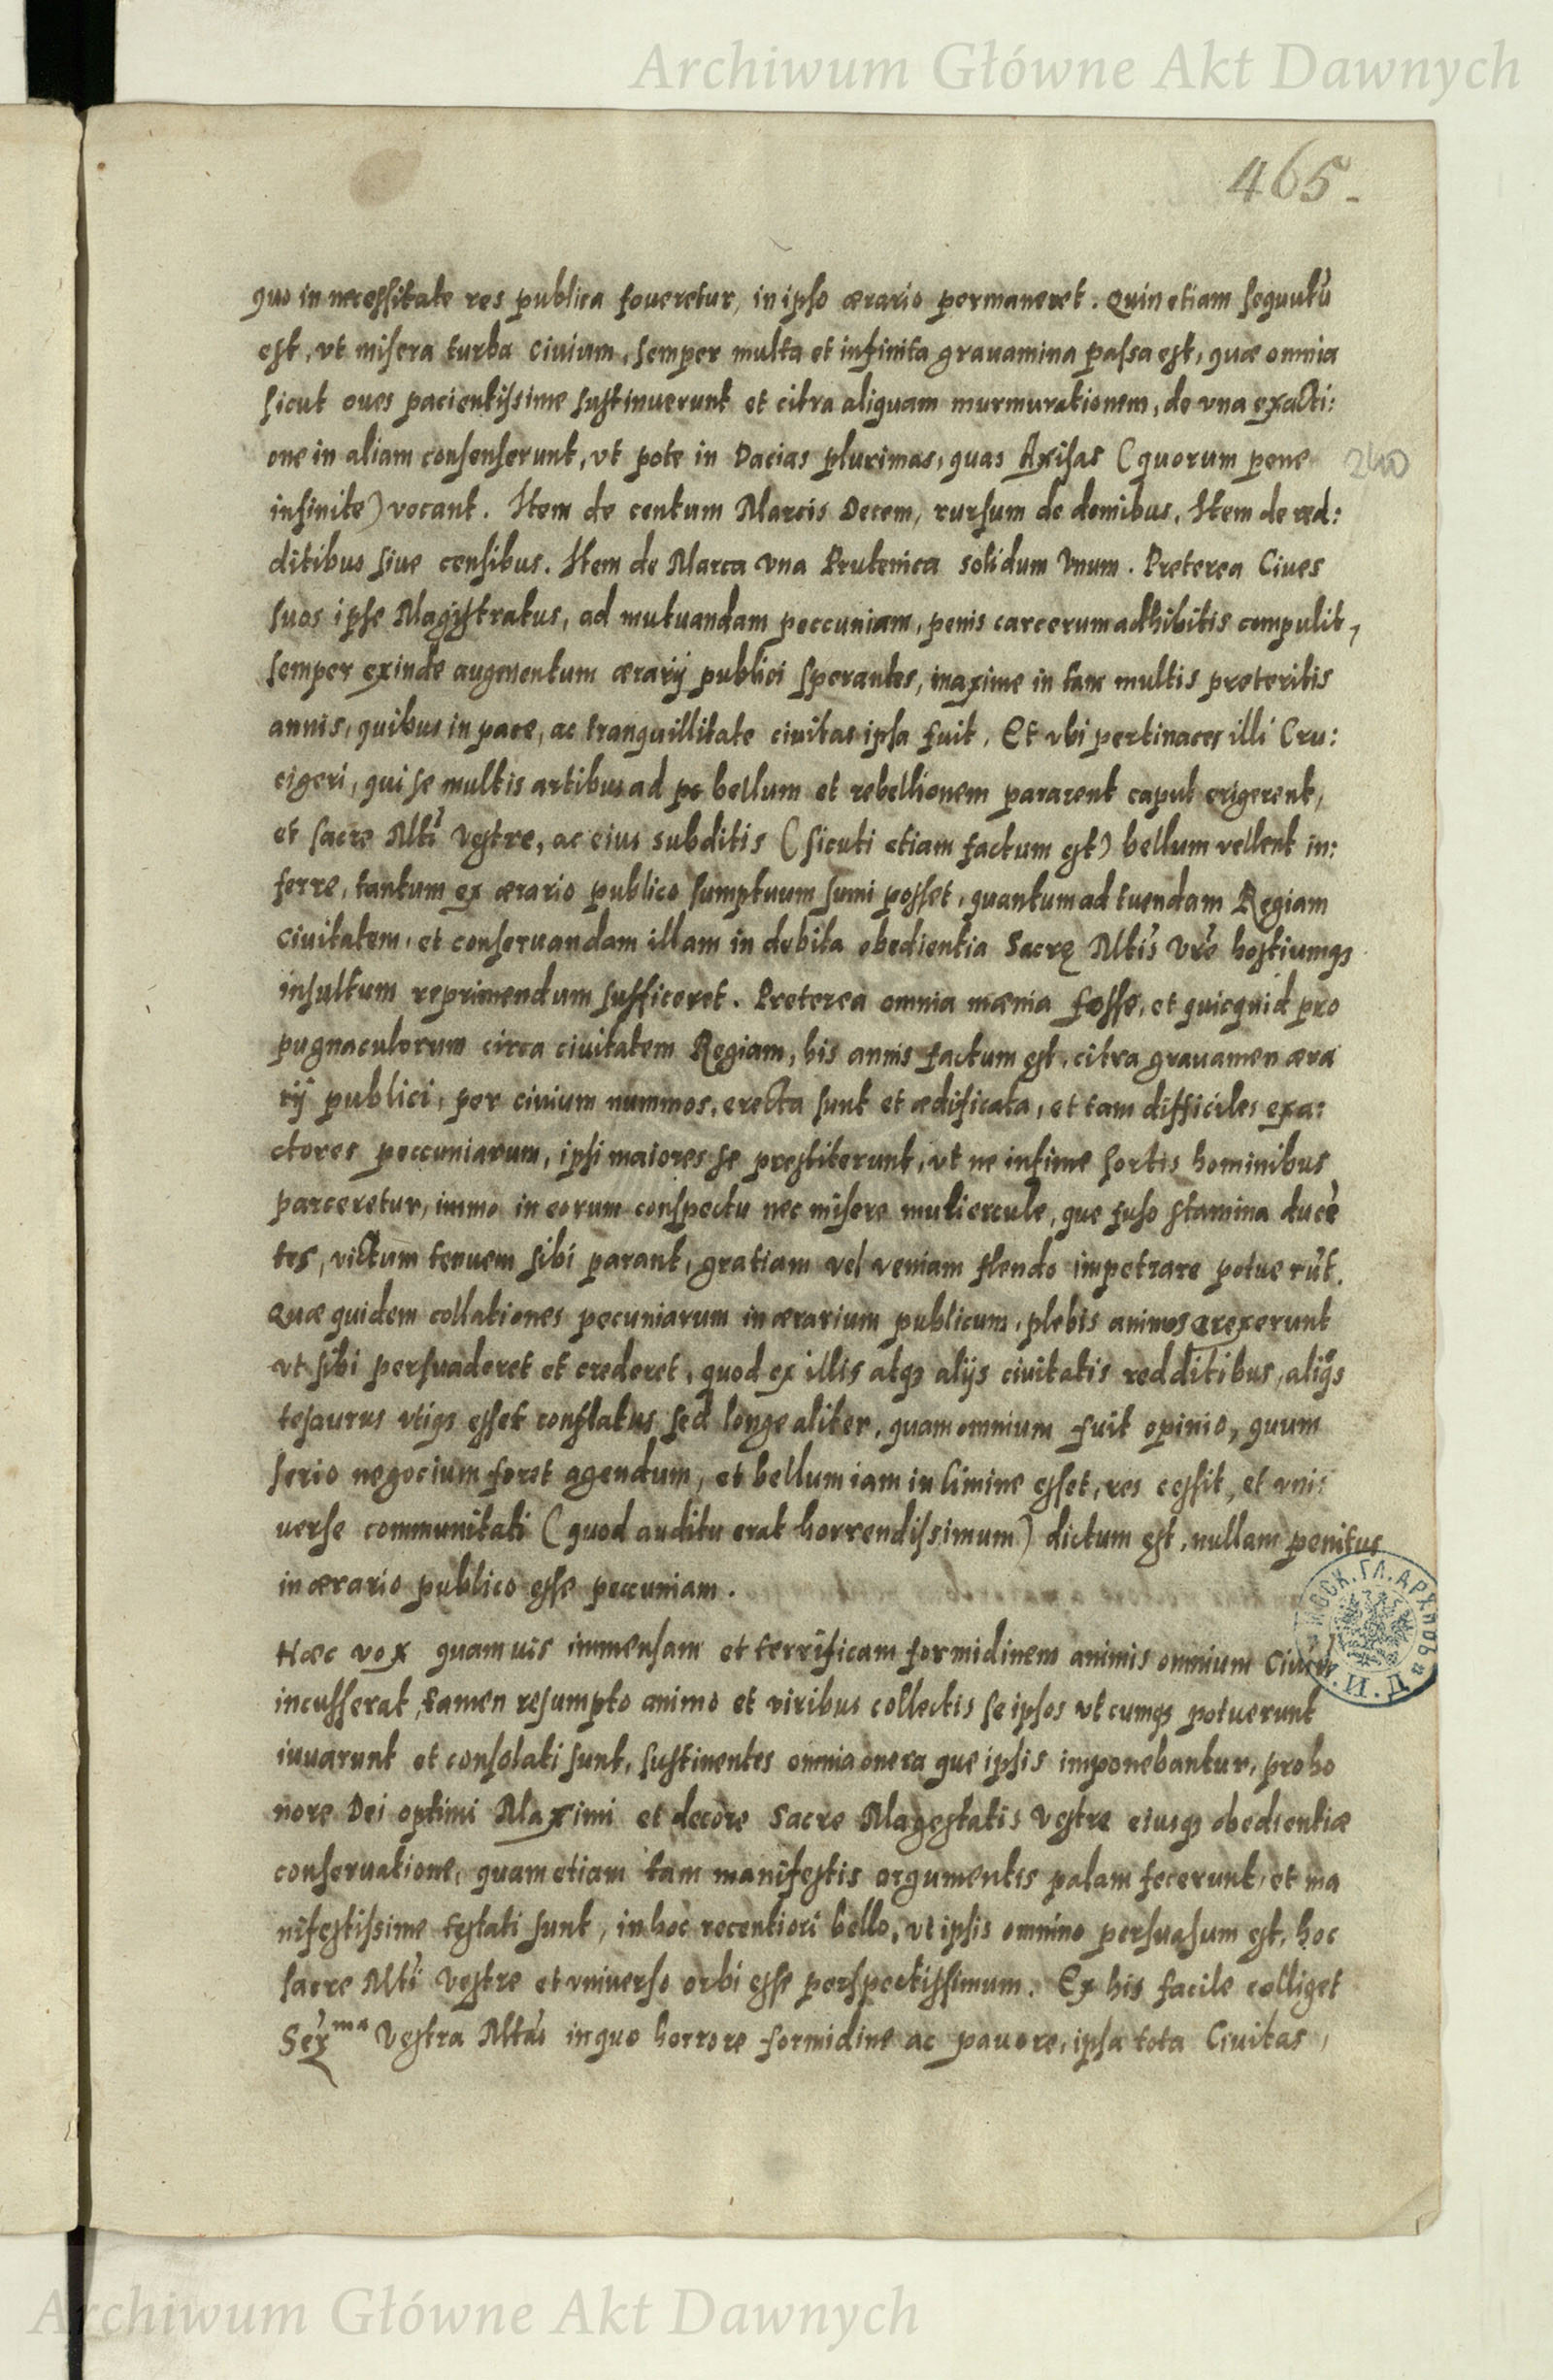 Archiwum Główne Akt Dawnych
465.
quo in necessitate res publica foueretur, in ipso ærario permaneret. Quin etiam sequutũ
est, vt misera turba ciuium, semper multa et infinita grauamina passa est, quæ omnia
sicut oues pacientissime sustinuerunt et citra aliquam murmurationem, de vna exacti:
one in aliam consenserunt, vt pote in Dacias plurimas, quas Axisas (quorum pene
240
infinite) vocant. Item de centum Marcis Decem, rursum de domibus, Item de red:
ditibus siue censibus. Item de Marca vna Prutenica solidum vnum. Preterea Ciues
suos ipse Magystratus, ad mutuandam peccuniam, penis carcerum adhibitis compulit,
semper exinde augmentum ærarij publici sperantes, maxime in tam multis preteritis
annis, quibus in pace, ac tranquillitate ciuitas ipsa fuit. Et vbi pertinaces illi Cru:
cigeri, qui se multis artibus ad pe bellum et rebellionem pararent caput erigerent,
et sacre Mti Vestre, ac eius subditis (sicuti etiam factum est) bellum vellent in:
ferre, tantum ex ærario publico sumptuum sumi posset, quantum ad tuendam Regiam
ciuitatem, et conseruandam illam in debita obedientia Sacrę Mtis Vre hostiumqz
insultum reprimendum sufficeret. Preterea omnia mænia fosse, et quicquid pro
pugnaculorum circa ciuitatem Regiam, his annis factum est, citra grauamen æra
rij publici, per ciuium nummos, erecta sunt et ædificata, et tam difficiles exa:
ctores peccuniarum, ipsi maiores se prestiterunt, vt ne infime sortis hominibus
parceretur, immo in eorum conspectu nec misere muliercule, que fuso stamina ducẽ
tes, victum tenuem sibi parant, gratiam vel veniam flendo impetrare potuerũt.
Quæ quidem collationes pecuniarum in ærarium publicum, plebis animos erexerunt
vt sibi persuaderet et crederet, quod ex illis atqz alijs ciuitatis redditibus, aliqs
tesaurus vtiqz esset conflatus sed longe aliter, quam omnium fuit opinio, quum
serio negocium foret agendum, et bellum iam in limine esset, res cessit, et vni:
uerse communitati (quod auditu erat horrendissimum) dictum est, nullam penitus
in ærario publico esse peccuniam.
Hæc vox quamuis immensam et terrificam formidinem animis omnium Ciuium
incusserat, tamen resumpto animo et viribus collectis se ipsos vtcumqz potuerunt
iuuarunt et consolati sunt, sustinentes omnia onera que ipsis imponebantur, pro ho
nore Dei optimi Maximi et decore Sacre Magestatis Vestre eiusqz obedientiæ
conseruatione, quam etiam tam manifestis argumentis palam fecerunt, et ma
nifestissime testati sunt, in hoc recentiori bello, vt ipsis omnino persuasum est, hoc
sacre Mti Vestre et vniuerso orbi esse perspectissimum. Ex his facile colliget
Serma Vestra Mtas in quo horrore formidine ac pauore, ipsa tota Ciuitas,
Archiwum Główne Akt Dawnych